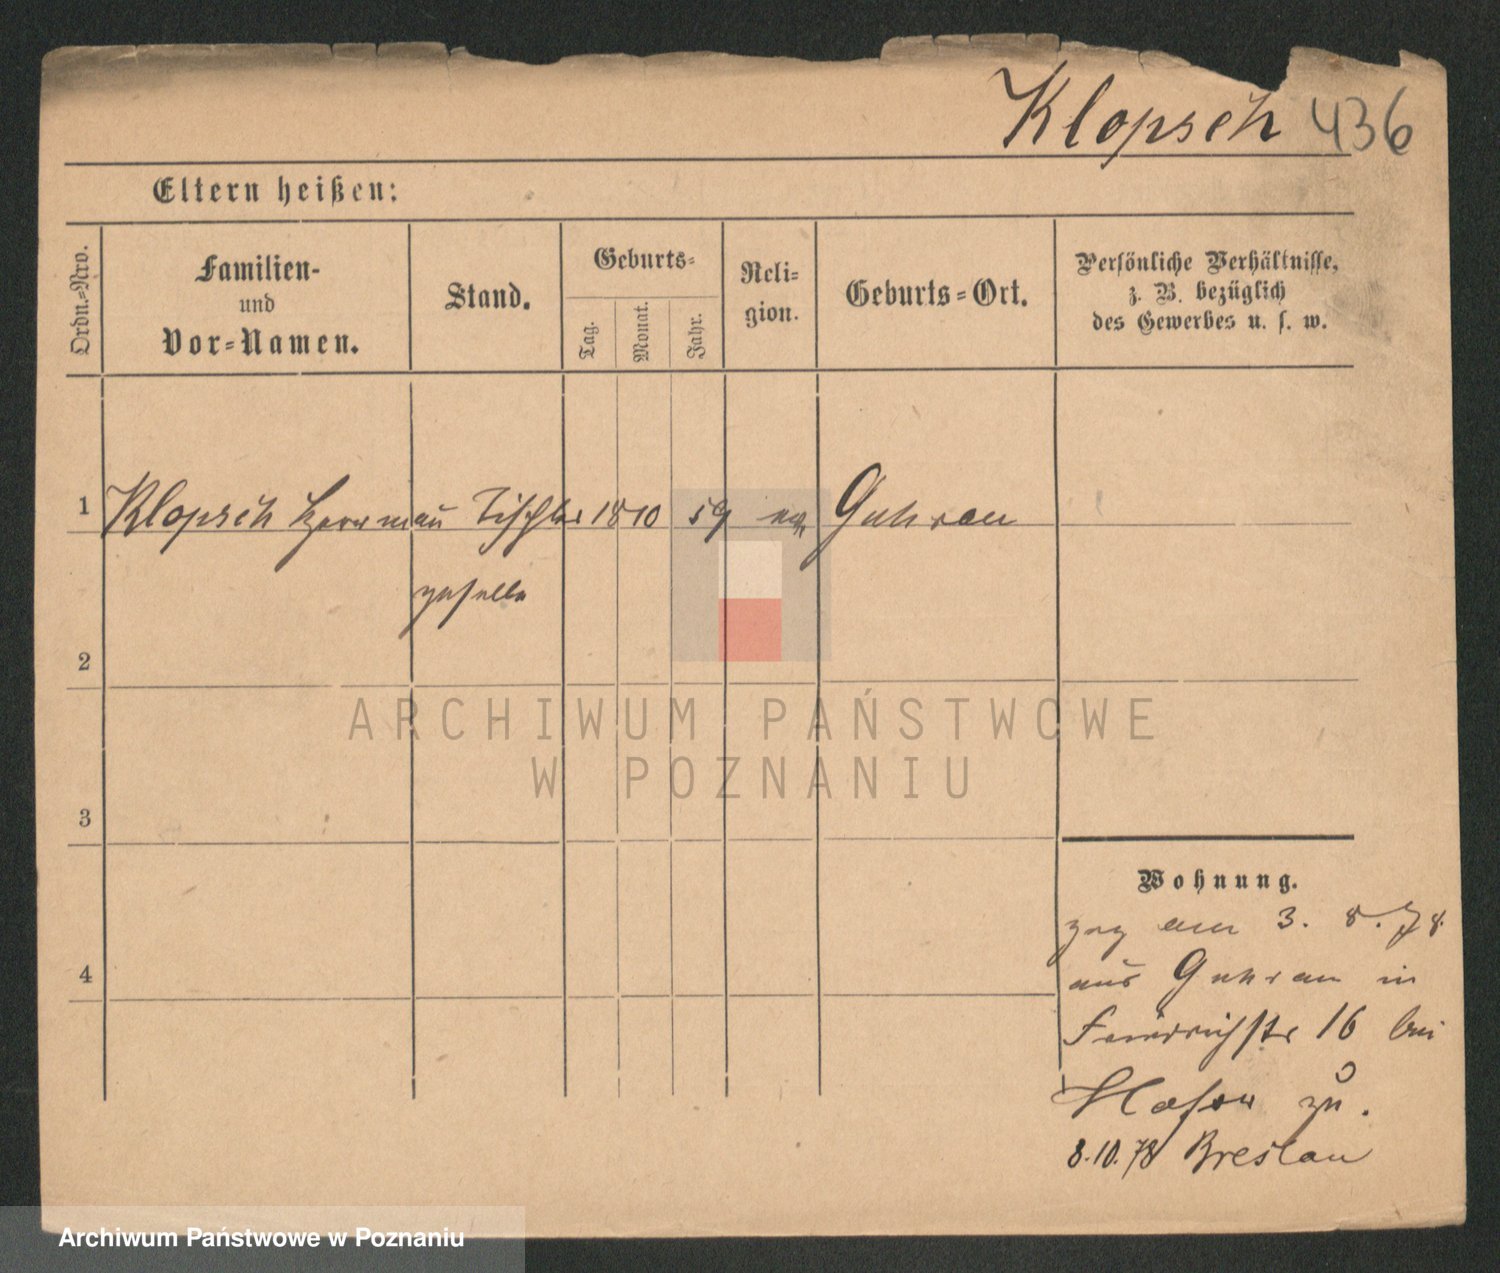 Klopsch 436
Eltern heißen:
Ordn.=Nro.
Familien-
und
Vor=Namen.
Stand.
Geburts=
Tag.
Monat.
Jahr.
Reli-
gion.
Geburts=Ort.
Persönliche Verhältnisse,
z. B. bezüglich
des Gewerbes u. s. w.
1 Klopsch Herrmann Tischler 18 10 59 ev Guhrau
geselle
2
3
4
Wohnung.
zog am 3. 8. 78.
aus Guhrau in
Friedrichstr 16 bei
zu.
8.10.78 Breslau
ARCHIWUM PAŃSTWOWE
W POZNANIU
Archiwum Państwowe w Poznaniu